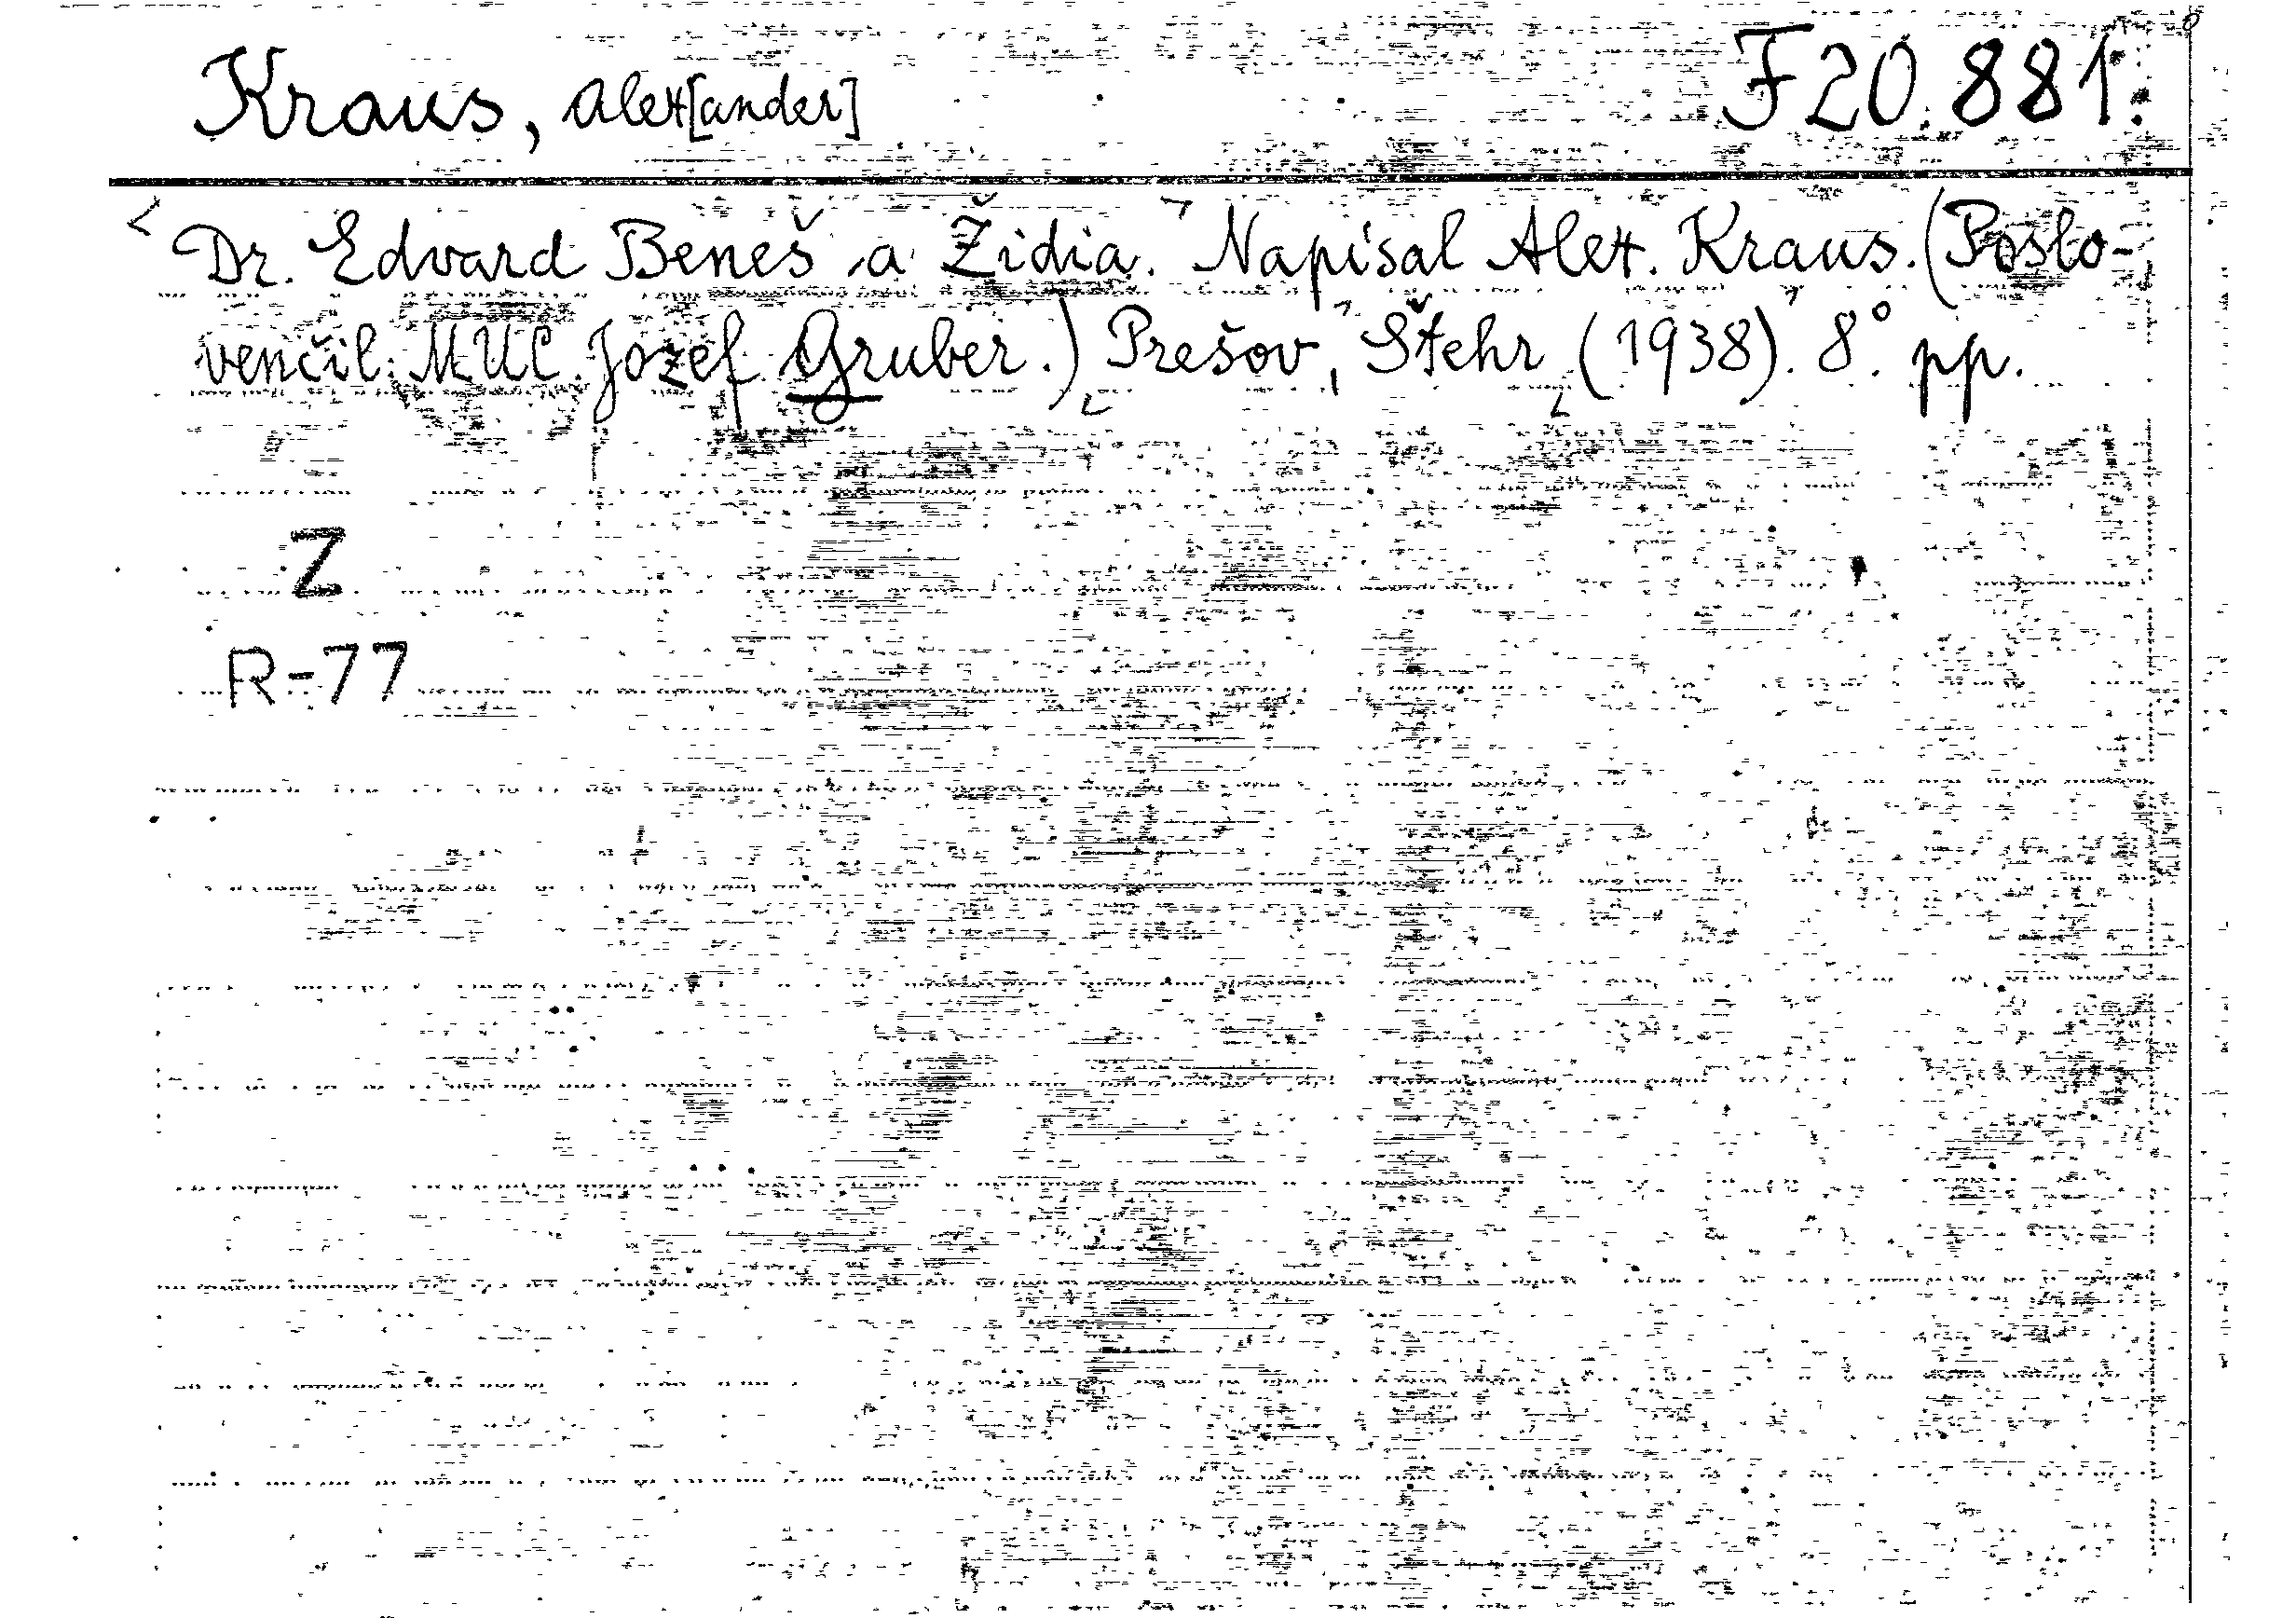 Kraus, Alex[ander] F 20.881.
Dr. Edvard Beneš a Židia. Napísal Alex. Kraus. (Poslo-
venčil: MUC. Jozef Gruber.) Prešov, Štehr (1938). 8° pp.
Z
R-77